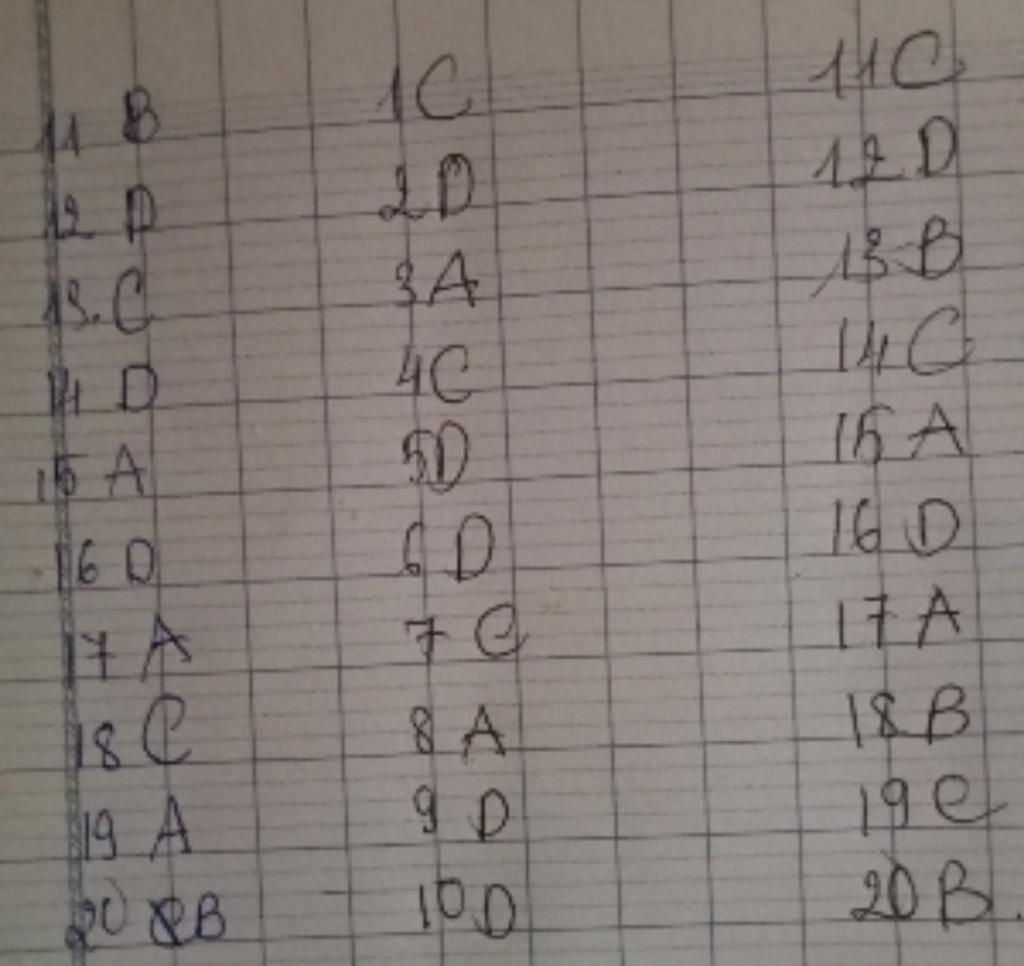 11 B
12 D
13. C
14 D
15 A
16 D
17 A
18 C
19 A
20 B
1 C
2 D
3 A
4 C
5 D
6 D
7 C
8 A
9 D
10 D
11 C
12 D
13 B
14 C
15 A
16 D
17 A
18 B
19 C
20 B.